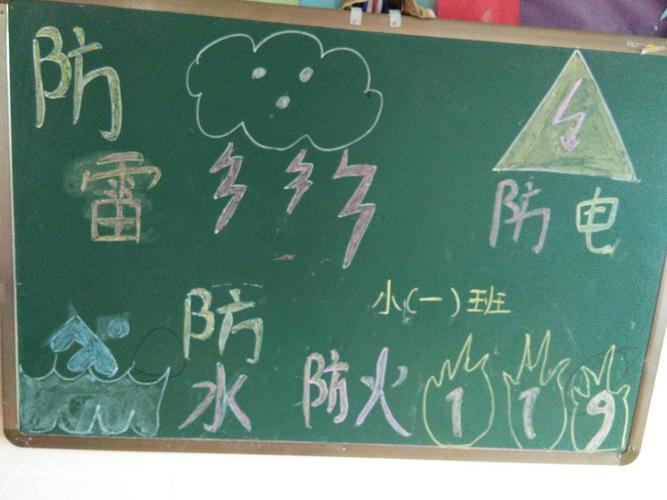 防
雷
防电
小(一)班
防
水
防火
119